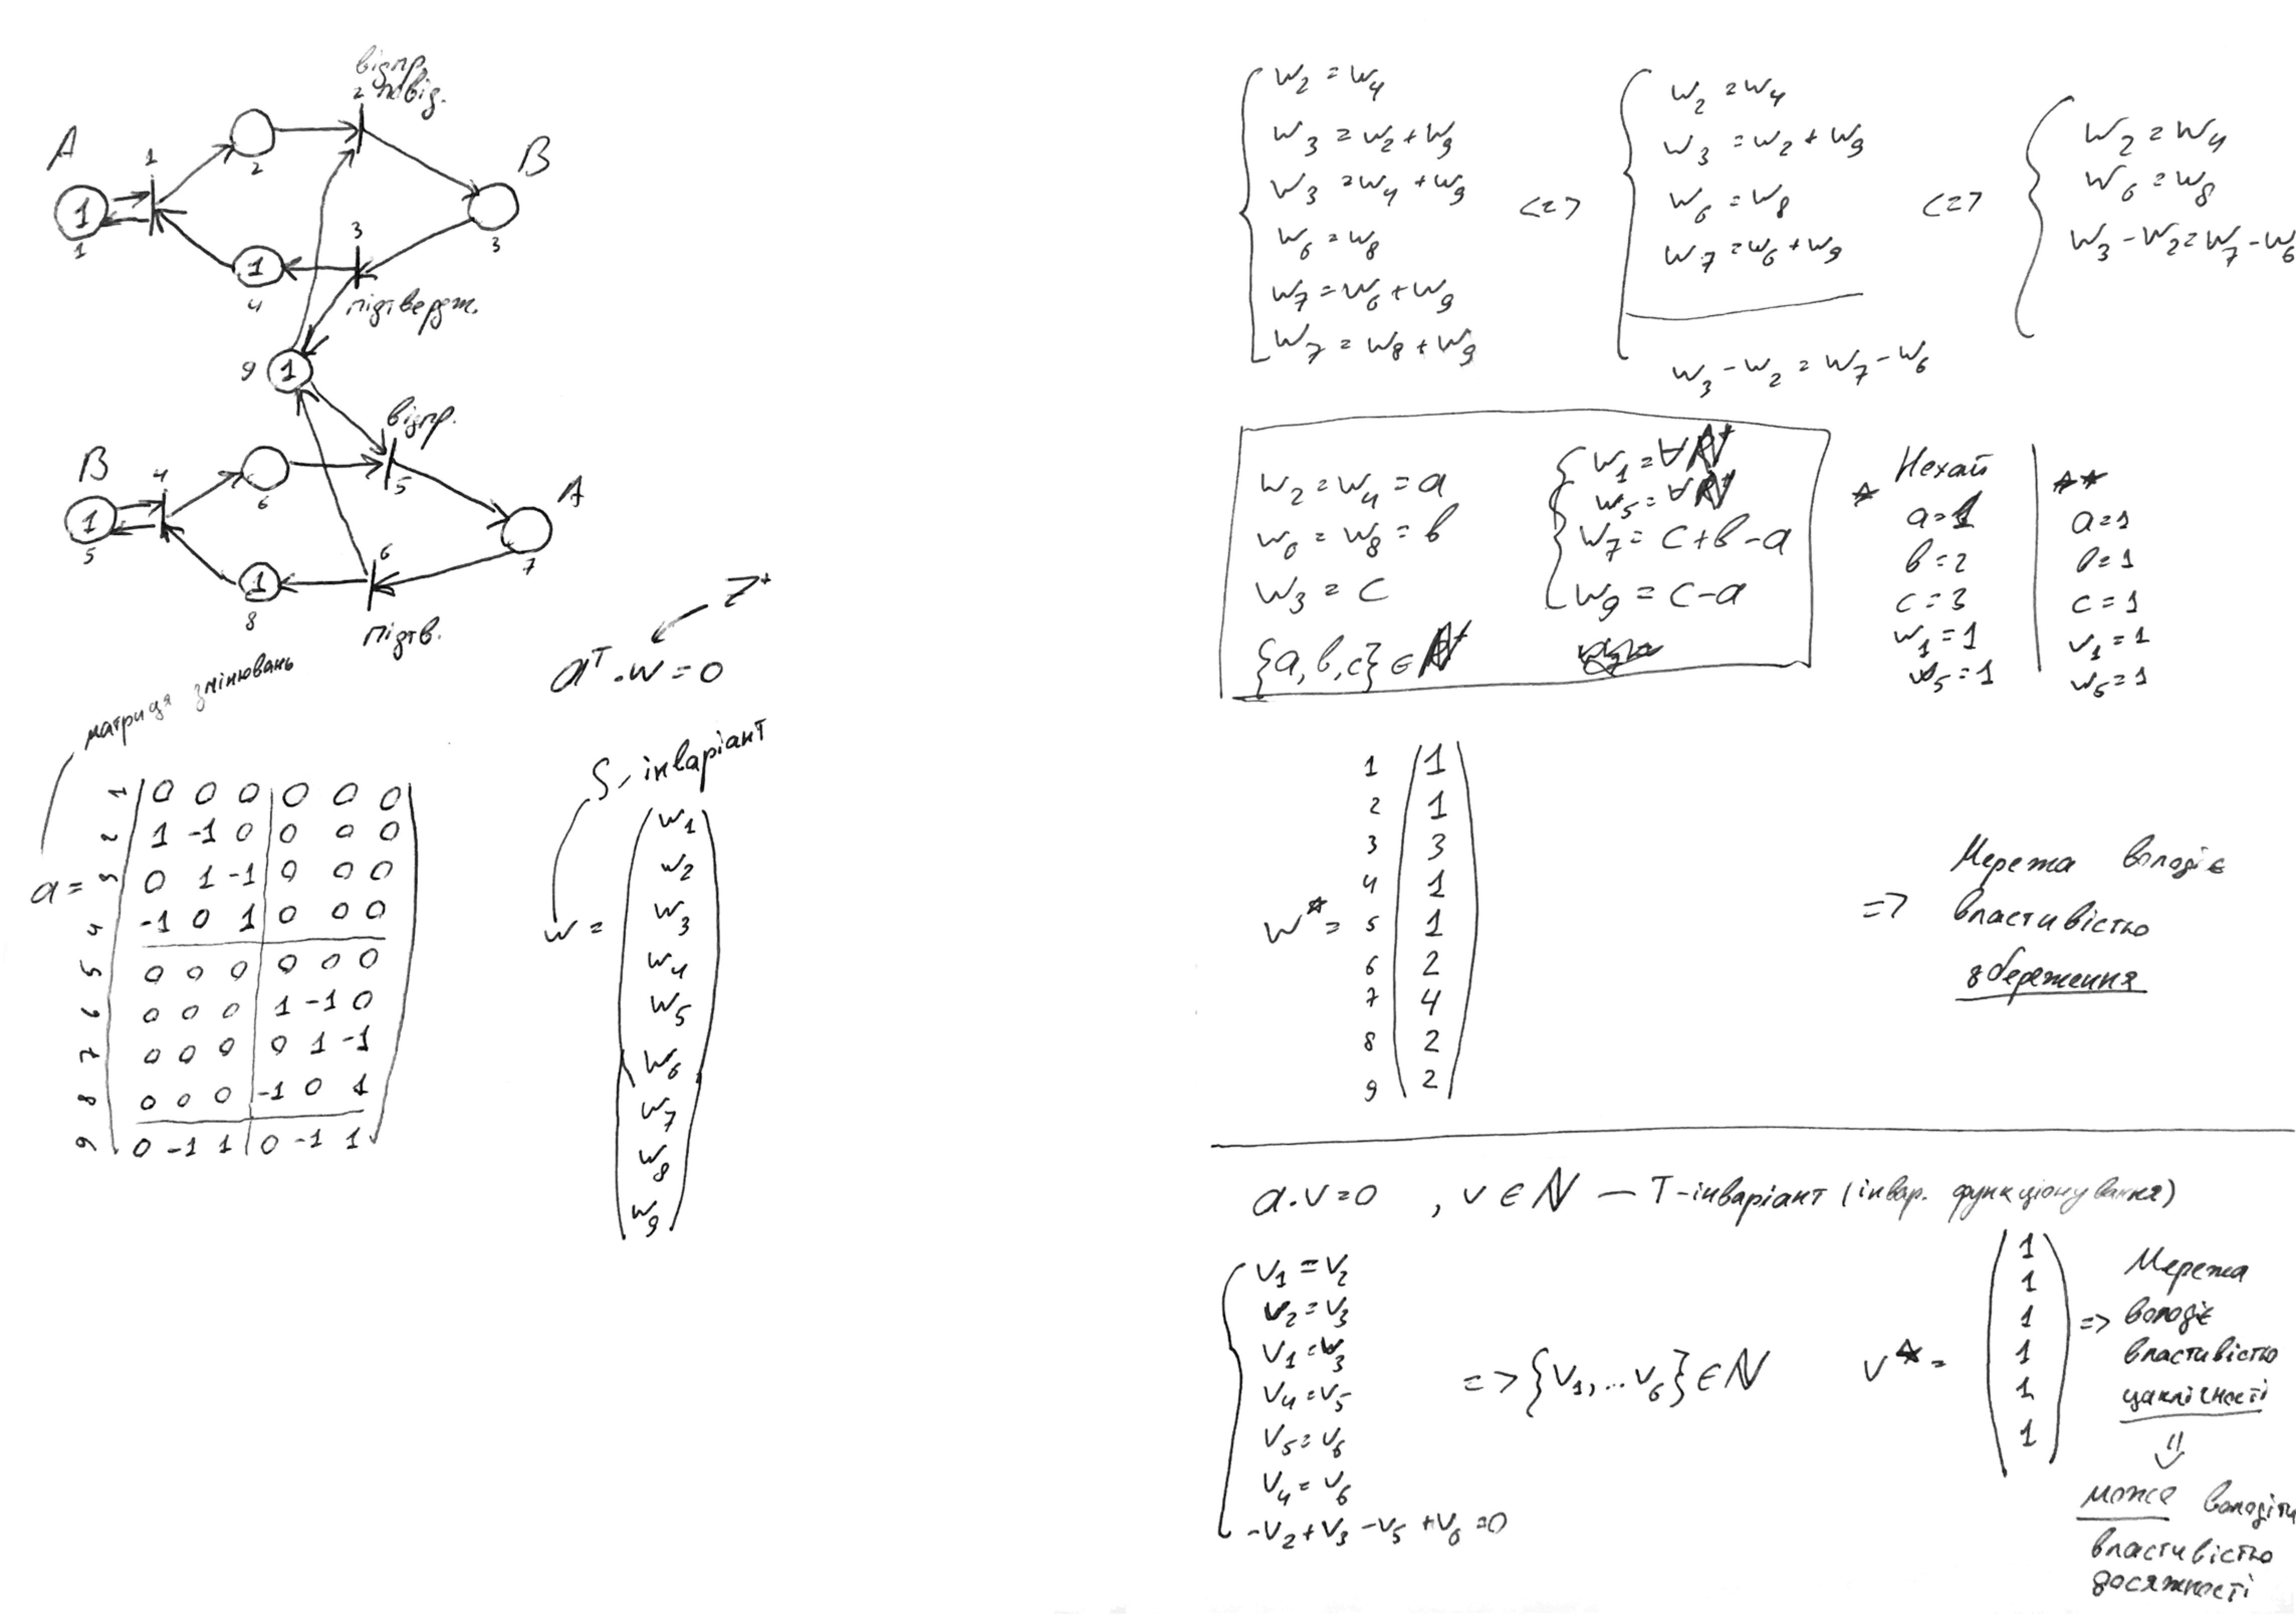 відпр.
2 повід.
A
1
2
B
1
1
3
3
1
4
підтвердж.
9
1
відпр.
B
4
6
5
A
1
5
6
7
1
8
підтв.
Z⁺
aᵀ·w=0
матриця змінювань
S-інваріант
a=
1 0 0 0 0 0 0
2 1 -1 0 0 0 0
3 0 1 -1 0 0 0
4 -1 0 1 0 0 0
5 0 0 0 0 0 0
6 0 0 0 1 -1 0
7 0 0 0 0 1 -1
8 0 0 0 -1 0 1
9 0 -1 1 0 -1 1
w =
w₁
w₂
w₃
w₄
w₅
w₆
w₇
w₈
w₉
w₂ = w₄
w₃ = w₂ + w₉
w₃ = w₄ + w₉
w₆ = w₈
w₇ = w₆ + w₉
w₇ = w₈ + w₉
<=>
w₂ = w₄
w₃ = w₂ + w₉
w₆ = w₈
w₇ = w₆ + w₉
w₃ - w₂ = w₇ - w₆
<=>
w₂ = w₄
w₆ = w₈
w₃ - w₂ = w₇ - w₆
w₂ = w₄ = a
w₆ = w₈ = b
w₃ = c
{a, b, c} ∈ N⁺
w₁ = ∀N⁺
w₅ = ∀N⁺
w₇ = c+b-a
w₉ = c-a
* Нехай
a=1
b=2
c=3
w₁=1
w₅=1
**
a=1
b=1
c=1
w₁=1
w₅=1
w* =
1 1
2 1
3 3
4 1
5 1
6 2
7 4
8 2
9 2
=> Мережа володіє
властивістю
збереження
a·v=0 , v ∈ N — T-інваріант (інвар. функціонування)
v₁ = v₂
v₂ = v₃
v₁ = v₃
v₄ = v₅
v₅ = v₆
v₄ = v₆
-v₂ + v₃ - v₅ + v₆ = 0
=> {v₁, ... v₆} ∈ N
v* =
1
1
1
1
1
1
=> Мережа
володіє
властивістю
циклічності
⇓
може володіти
властивістю
досяжності